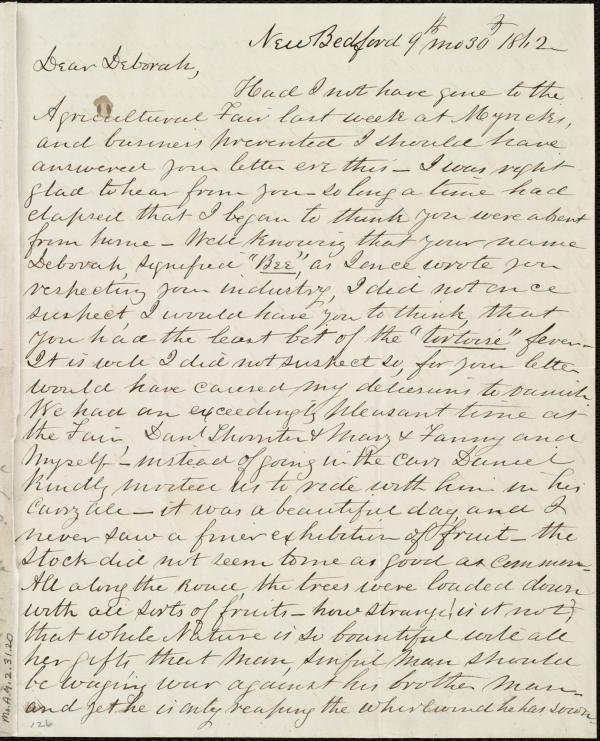 New Bedford 9th mo 30th 1862
Dear Deborah,
Had I not have gone to the
Agricultural Fair last week at Myricks,
and business prevented I should have
answered your letter ere this – I was right
glad to hear from you – so long a time had
elapsed that I began to think you were absent
from home – Well knowing that your name
Deborah, signified "Bee", as I once wrote you
respecting your industry, I did not once
suspect, I would have you to think, that
you had the least bit of the "tortoise" fever –
It is well I did not suspect so, for your letter
would have caused my delusions to vanish.
We had an exceedingly pleasant time at
the Fair Danl Thornton & Mary & Fanny and
Myself – instead of going in the cars Daniel
kindly invited us to ride with him in his
carryall – it was a beautiful day, and I
never saw a finer exhibition of fruit – the
stock did not seem to me as good as common –
All along the road, the trees were loaded down
with all sorts of fruits – how strange! is it not?
that while Nature is so bountiful with all
her gifts that Man, sinful Man should
be waging war against his brother man –
and yet he is only reaping the whirlwind he has sown –
Ms.A.9.2.31.20
126